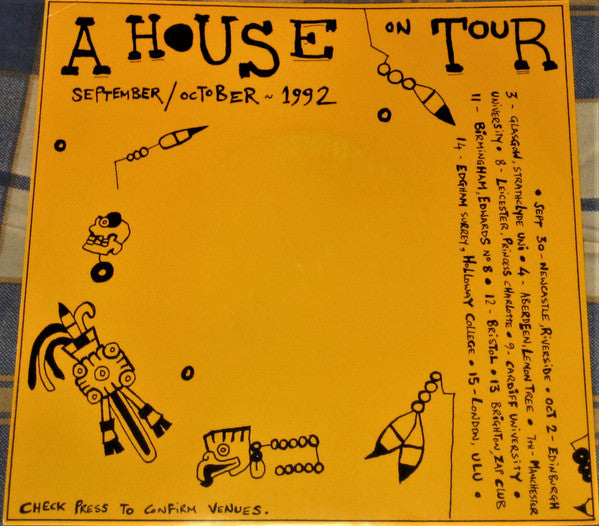 A HOUSE ON TOUR
SEPTEMBER/OCTOBER ~ 1992
• SEPT 30 - NEWCASTLE, RIVERSIDE • OCT 2 - EDINBURGH
3 - GLASGOW, STRATHCLYDE UNI • 4 - ABERDEEN, LEMON TREE • 7TH - MANCHESTER
UNIVERSITY • 8 - LEICESTER, PRINCESS CHARLOTTE • 9 - CARDIFF UNIVERSITY •
11 - BIRMINGHAM, EDWARDS No 8 • 12 - BRISTOL • 13 BRIGHTON, ZAP CLUB
14 - EDGHAM SURREY, HOLLOWAY COLLEGE • 15 - LONDON, ULU •
CHECK PRESS TO CONFIRM VENUES.